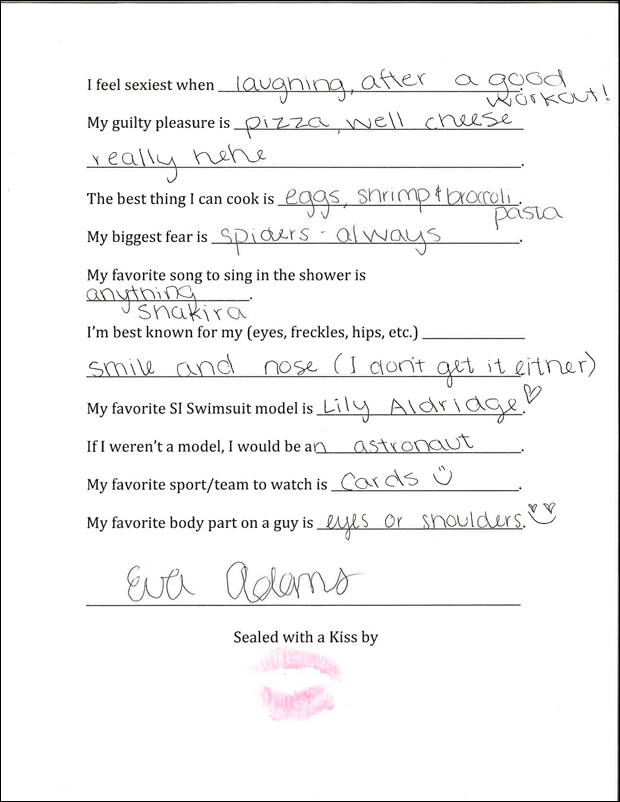 I feel sexiest when laughing, after a good
workout!
My guilty pleasure is pizza, well cheese
really hehe.
The best thing I can cook is eggs, shrimp & broccoli.
pasta
My biggest fear is spiders - always.
My favorite song to sing in the shower is
anything.
shakira
I'm best known for my (eyes, freckles, hips, etc.)
smile and nose (I don't get it either)
My favorite SI Swimsuit model is Lily Aldridge ♡.
If I weren't a model, I would be an astronaut.
My favorite sport/team to watch is Cards ☺.
My favorite body part on a guy is eyes or shoulders.
Eva Adams
Sealed with a Kiss by